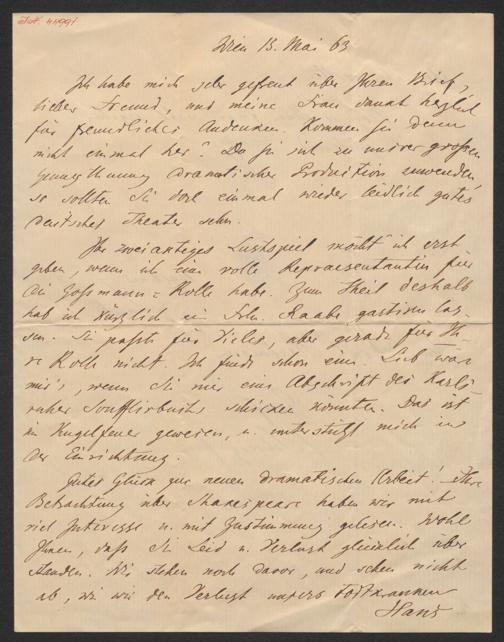 Wien 13. Mai 63
Ich habe mich sehr gefreut über Ihren Brief,
lieber Freund, und meine Frau dankt herzlich
für freundliches Andenken. Kommen Sie denn
nicht einmal her? Da Sie sich zu unsrer großen
Genugthuung dramatischer Produktion zuwenden
so sollten Sie doch einmal wieder leidlich gutes
deutsches Theater sehn.
Ihr zweiaktiges Lustspiel möcht' ich erst
geben, wenn ich eine volle Repraesentantin für
die Goßmann-Rolle habe. Zum Theil deshalb
hab ich kürzlich ein Frln. Raabe gastiren las-
sen. Sie paßte für Vieles, aber gerade für Ih-
re Rolle nicht. Ich finde schon eine. Lieb wär
mir's, wenn Sie mir eine Abschrift des Karls-
ruher Soufflirbuchs schicken könnten. Das ist
im Kugelfeuer gewesen, u. unterstützt mich in
der Einrichtung.
Gutes Glück zur neuen dramatischen Arbeit! Ihre
Betrachtung über Shakespeare haben wir mit
viel Interesse u. mit Zustimmung gelesen. Wohl
Ihnen, daß Sie Leid u. Verlust glücklich über
standen. Wir stehen noch davor, und sehen nicht
ab, wie wir den Verlust unsers
Hans